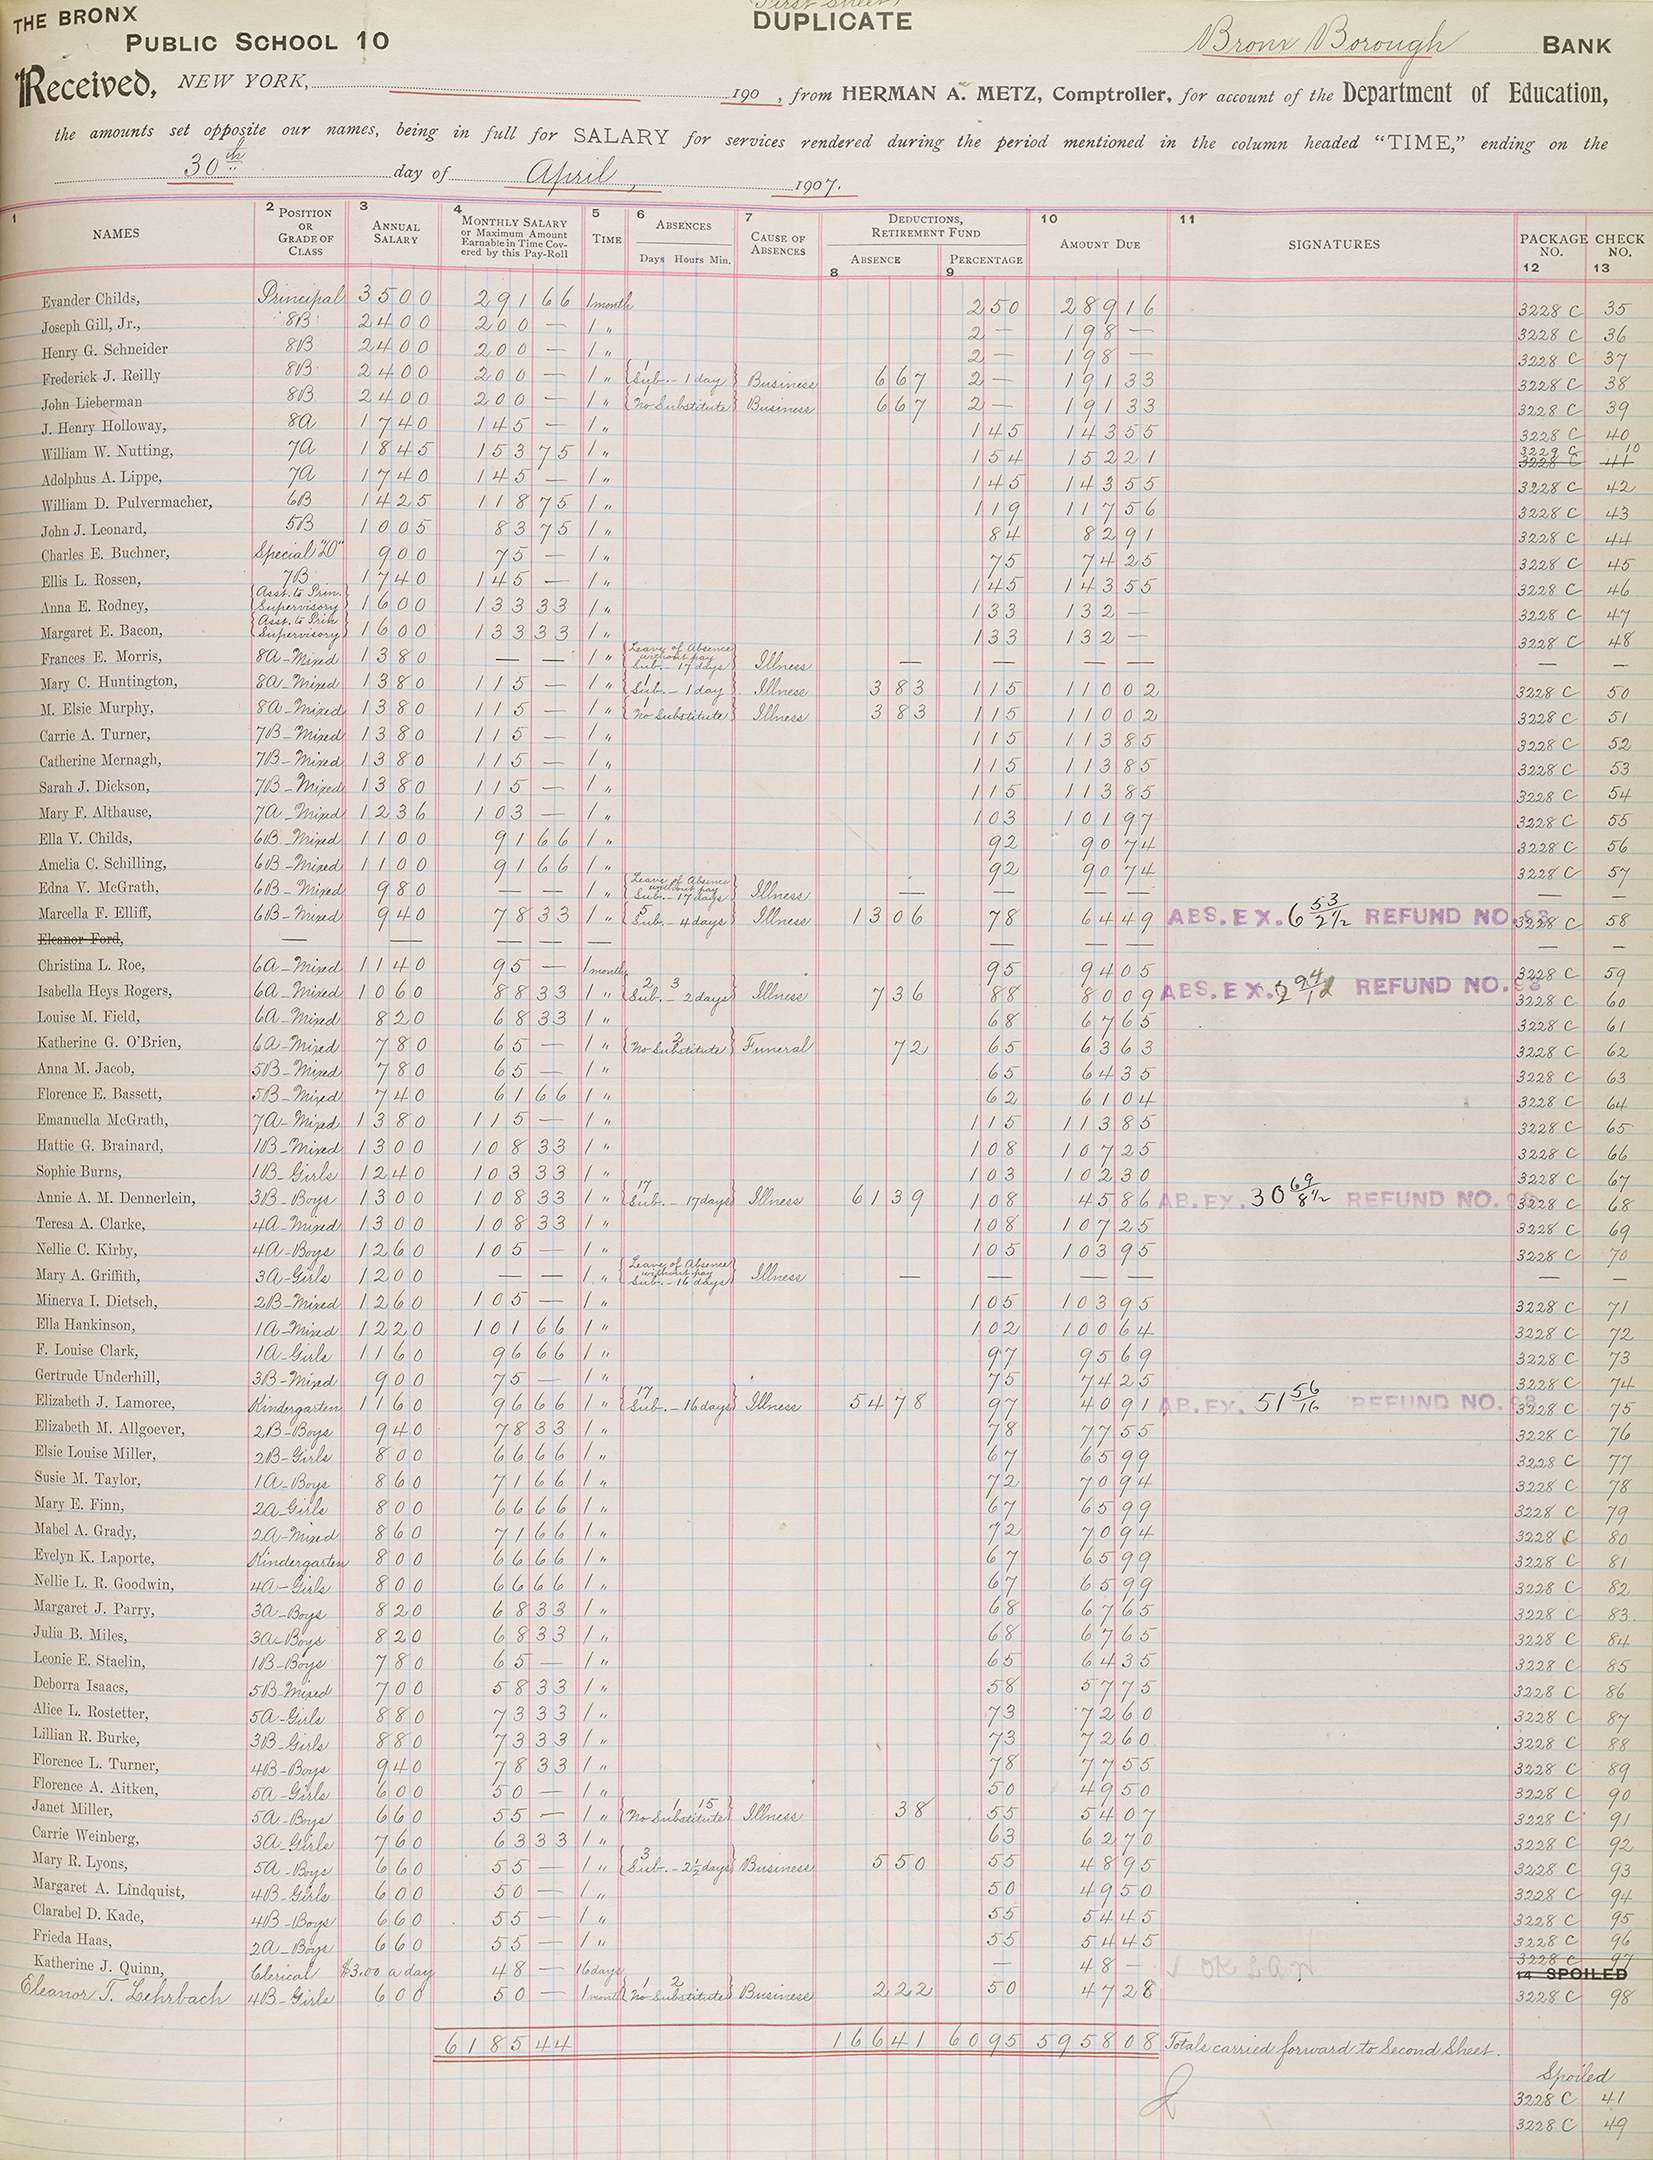 (First Sheet)
THE BRONX
PUBLIC SCHOOL 10
DUPLICATE
Bronx Borough BANK
Received, NEW YORK, 190 , from HERMAN A. METZ, Comptroller, for account of the Department of Education,
the amounts set opposite our names, being in full for SALARY for services rendered during the period mentioned in the column headed "TIME," ending on the
30th day of April, 1907.
1 NAMES 2 POSITION OR GRADE OF CLASS 3 ANNUAL SALARY 4 MONTHLY SALARY or Maximum Amount Earnable in Time Covered by this Pay-Roll 5 TIME 6 ABSENCES Days Hours Min. 7 CAUSE OF ABSENCES DEDUCTIONS, RETIREMENT FUND 8 ABSENCE 9 PERCENTAGE 10 AMOUNT DUE 11 SIGNATURES PACKAGE NO. 12 CHECK NO. 13
Evander Childs, Principal 3500 291 66 1 month 2 50 289 16 3228 C 35
Joseph Gill, Jr., 8B 2400 200 — 1 " 2 — 198 — 3228 C 36
Henry G. Schneider 8B 2400 200 — 1 " 2 — 198 — 3228 C 37
Frederick J. Reilly 8B 2400 200 — 1 " 1 Sub. - 1 day Business 6 67 2 — 191 33 3228 C 38
John Lieberman 8B 2400 200 — 1 " 1 No Substitute Business 6 67 2 — 191 33 3228 C 39
J. Henry Holloway, 8A 1740 145 — 1 " 1 45 143 55 3228 C 40
William W. Nutting, 7A 1845 153 75 1 " 1 54 152 21 3229 C 10 3228 C 41
Adolphus A. Lippe, 7A 1740 145 — 1 " 1 45 143 55 3228 C 42
William D. Pulvermacher, 6B 1425 118 75 1 " 1 19 117 56 3228 C 43
John J. Leonard, 5B 1005 83 75 1 " 84 82 91 3228 C 44
Charles E. Buchner, Special "20" 900 75 — 1 " 75 74 25 3228 C 45
Ellis L. Rossen, 7B 1740 145 — 1 " 1 45 143 55 3228 C 46
Anna E. Rodney, Asst. to Prin. Supervisory 1600 133 33 1 " 1 33 132 — 3228 C 47
Margaret E. Bacon, Asst. to Prin Supervisory 1600 133 33 1 " 1 33 132 — 3228 C 48
Frances E. Morris, 8A-Mixed 1380 — — 1 " Leave of Absence without pay Sub. - 17 days Illness — — — — — —
Mary C. Huntington, 8A-Mixed 1380 115 — 1 " 1 Sub. - 1 day Illness 3 83 1 15 110 02 3228 C 50
M. Elsie Murphy, 8A-Mixed 1380 115 — 1 " 1 No Substitute Illness 3 83 1 15 110 02 3228 C 51
Carrie A. Turner, 7B-Mixed 1380 115 — 1 " 1 15 113 85 3228 C 52
Catherine Mernagh, 7B-Mixed 1380 115 — 1 " 1 15 113 85 3228 C 53
Sarah J. Dickson, 7B-Mixed 1380 115 — 1 " 1 15 113 85 3228 C 54
Mary F. Althause, 7A-Mixed 1236 103 — 1 " 1 03 101 97 3228 C 55
Ella V. Childs, 6B-Mixed 1100 91 66 1 " 92 90 74 3228 C 56
Amelia C. Schilling, 6B-Mixed 1100 91 66 1 " 92 90 74 3228 C 57
Edna V. McGrath, 6B-Mixed 980 — — 1 " Leave of Absence without pay Sub. - 17 days Illness — — — — — —
Marcella F. Elliff, 6B-Mixed 940 78 33 1 " 5 Sub. - 4 days Illness 13 06 78 64 49 ABS. EX. 6 53 2½ REFUND NO. 98 3228 C 58
Eleanor Ford, — — — — — — — — — —
Christina L. Roe, 6A-Mixed 1140 95 — 1 month 95 94 05 3228 C 59
Isabella Heys Rogers, 6A-Mixed 1060 88 33 1 " 2 3 Sub. - 2 days Illness 7 36 88 80 09 ABS. EX. 2 94 REFUND NO. 98 3228 C 60
Louise M. Field, 6A-Mixed 820 68 33 1 " 68 67 65 3228 C 61
Katherine G. O'Brien, 6A-Mixed 780 65 — 1 " No Substitute Funeral 72 65 63 63 3228 C 62
Anna M. Jacob, 5B-Mixed 780 65 — 1 " 65 64 35 3228 C 63
Florence E. Bassett, 5B-Mixed 740 61 66 1 " 62 61 04 3228 C 64
Emanuella McGrath, 7A-Mixed 1380 115 — 1 " 1 15 113 85 3228 C 65
Hattie G. Brainard, 1B-Mixed 1300 108 33 1 " 1 08 107 25 3228 C 66
Sophie Burns, 1B-Girls 1240 103 33 1 " 1 03 102 30 3228 C 67
Annie A. M. Dennerlein, 3B-Boys 1300 108 33 1 " 17 Sub. - 17 days Illness 61 39 1 08 45 86 AB. EX. 30 69 8½ REFUND NO. 98 3228 C 68
Teresa A. Clarke, 4A-Mixed 1300 108 33 1 " 1 08 107 25 3228 C 69
Nellie C. Kirby, 4A-Boys 1260 105 — 1 " 1 05 103 95 3228 C 70
Mary A. Griffith, 3A-Girls 1200 — — 1 " Leave of Absence without pay Sub. - 16 days Illness — — — — — —
Minerva I. Dietsch, 2B-Mixed 1260 105 — 1 " 1 05 103 95 3228 C 71
Ella Hankinson, 1A-Mixed 1220 101 66 1 " 1 02 100 64 3228 C 72
F. Louise Clark, 1A-Girls 1160 96 66 1 " 97 95 69 3228 C 73
Gertrude Underhill, 3B-Mixed 900 75 — 1 " 75 74 25 3228 C 74
Elizabeth J. Lamoree, Kindergarten 1160 96 66 1 " 17 Sub. - 16 days Illness 54 78 97 40 91 AB. EX. 51 56 16 REFUND NO. 98 3228 C 75
Elizabeth M. Allgoever, 2B-Boys 940 78 33 1 " 78 77 55 3228 C 76
Elsie Louise Miller, 2B-Girls 800 66 66 1 " 67 65 99 3228 C 77
Susie M. Taylor, 1A-Boys 860 71 66 1 " 72 70 94 3228 C 78
Mary E. Finn, 2A-Girls 800 66 66 1 " 67 65 99 3228 C 79
Mabel A. Grady, 2A-Mixed 860 71 66 1 " 72 70 94 3228 C 80
Evelyn K. Laporte, Kindergarten 800 66 66 1 " 67 65 99 3228 C 81
Nellie L. R. Goodwin, 4A-Girls 800 66 66 1 " 67 65 99 3228 C 82
Margaret J. Parry, 3A-Boys 820 68 33 1 " 68 67 65 3228 C 83
Julia B. Miles, 3A-Boys 820 68 33 1 " 68 67 65 3228 C 84
Leonie E. Staelin, 1B-Boys 780 65 — 1 " 65 64 35 3228 C 85
Deborra Isaacs, 5B-Mixed 700 58 33 1 " 58 57 75 3228 C 86
Alice L. Rostetter, 5A-Girls 880 73 33 1 " 73 72 60 3228 C 87
Lillian R. Burke, 3B-Girls 880 73 33 1 " 73 72 60 3228 C 88
Florence L. Turner, 4B-Boys 940 78 33 1 " 78 77 55 3228 C 89
Florence A. Aitken, 5A-Girls 600 50 — 1 " 50 49 50 3228 C 90
Janet Miller, 5A-Boys 660 55 — 1 " 1 15 No Substitute Illness 38 55 54 07 3228 C 91
Carrie Weinberg, 3A-Girls 760 63 33 1 " 63 62 70 3228 C 92
Mary R. Lyons, 5A-Boys 660 55 — 1 " 3 Sub. - 2½ days Business 5 50 55 48 95 3228 C 93
Margaret A. Lindquist, 4B-Girls 600 50 — 1 " 50 49 50 3228 C 94
Clarabel D. Kade, 4B-Boys 660 55 — 1 " 55 54 45 3228 C 95
Frieda Haas, 2A-Boys 660 55 — 1 " 55 54 45 3228 C 96
Katherine J. Quinn, Clerical $3.00 a day 48 — 16 days — 48 — 3228 C 97 SPOILED
Eleanor T. Lehrbach 4B-Girls 600 50 — 1 month 1 2 No Substitute Business 2 22 50 47 28 3228 C 98
6185 44 166 41 60 95 5958 08 Totals carried forward to Second Sheet.
Spoiled
3228 C 41
3228 C 49